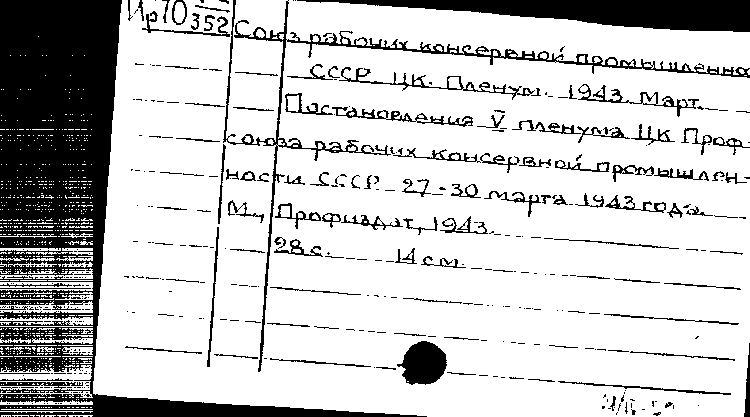 Ир70
352 Союз рабочих консервной промышленно
СССР. ЦК. Пленум. 1943. Март.
Постановления V пленума ЦК Проф-
союза рабочих консервной промышлен-
ности СССР 27-30 марта 1943 года.
М., Профиздат, 1943.
28 с. 14 см.